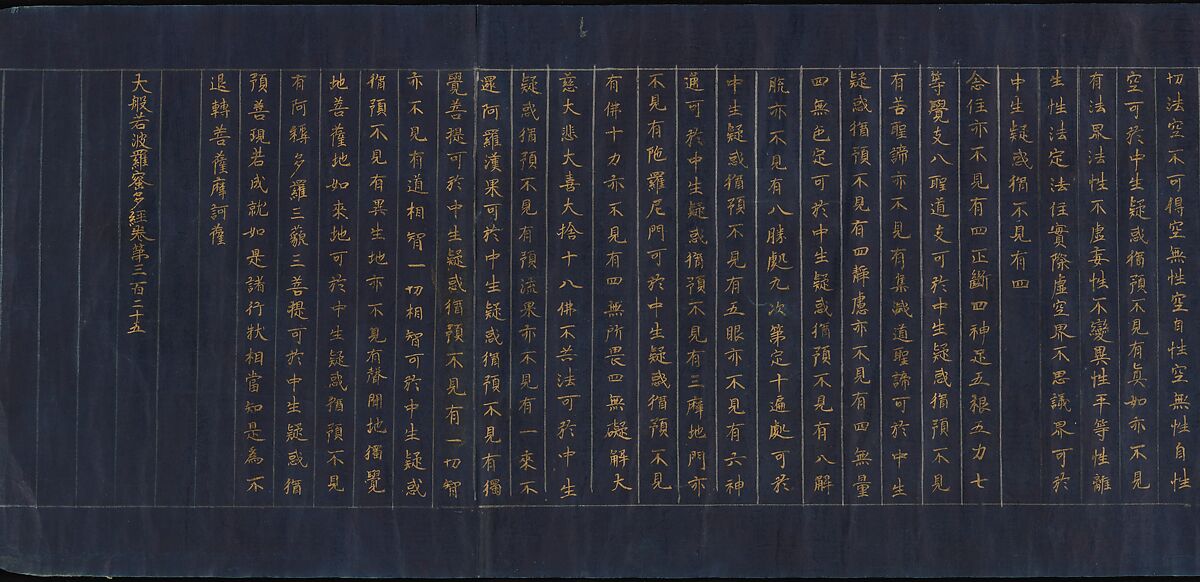 切法空不可得空無性空自性空無性自性
空可於中生疑或猶預不見有真如亦不見
有法界法性不虛妄性不變異性平等性離
生性法定法住實際虛空界不思議界可於
中生疑或猶不見有四
念住亦不見有四正斷四神足五根五力七
等覺支八聖道支可於中生疑或猶預不見
有苦聖諦亦不見有集滅道聖諦可於中生
疑或猶預不見有四靜慮亦不見有四無量
四無色定可於中生疑或猶預不見有八解
脫亦不見有八勝處九次第定十遍處可於
中生疑或猶預不見有五眼亦不見有六神
通可於中生疑或猶預不見有三摩地門亦
不見有陁羅尼門可於中生疑或猶預不見
有佛十力亦不見有四無所畏四無礙解大
慈大悲大喜大捨十八佛不共法可於中生
疑或猶預不見有預流果亦不見有一來不
還阿羅漢果可於中生疑或猶預不見有獨
覺菩提可於中生疑或猶預不見有一切智
亦不見有道相智一切相智可於中生疑或
猶預不見有異生地亦不見有聲聞地獨覺
地菩薩地如來地可於中生疑或猶預不見
有阿耨多羅三藐三菩提可於中生疑或猶
預善現若成就如是諸行狀相當知是為不
退轉菩薩摩訶薩
大般若波羅蜜多經卷第三百二十五